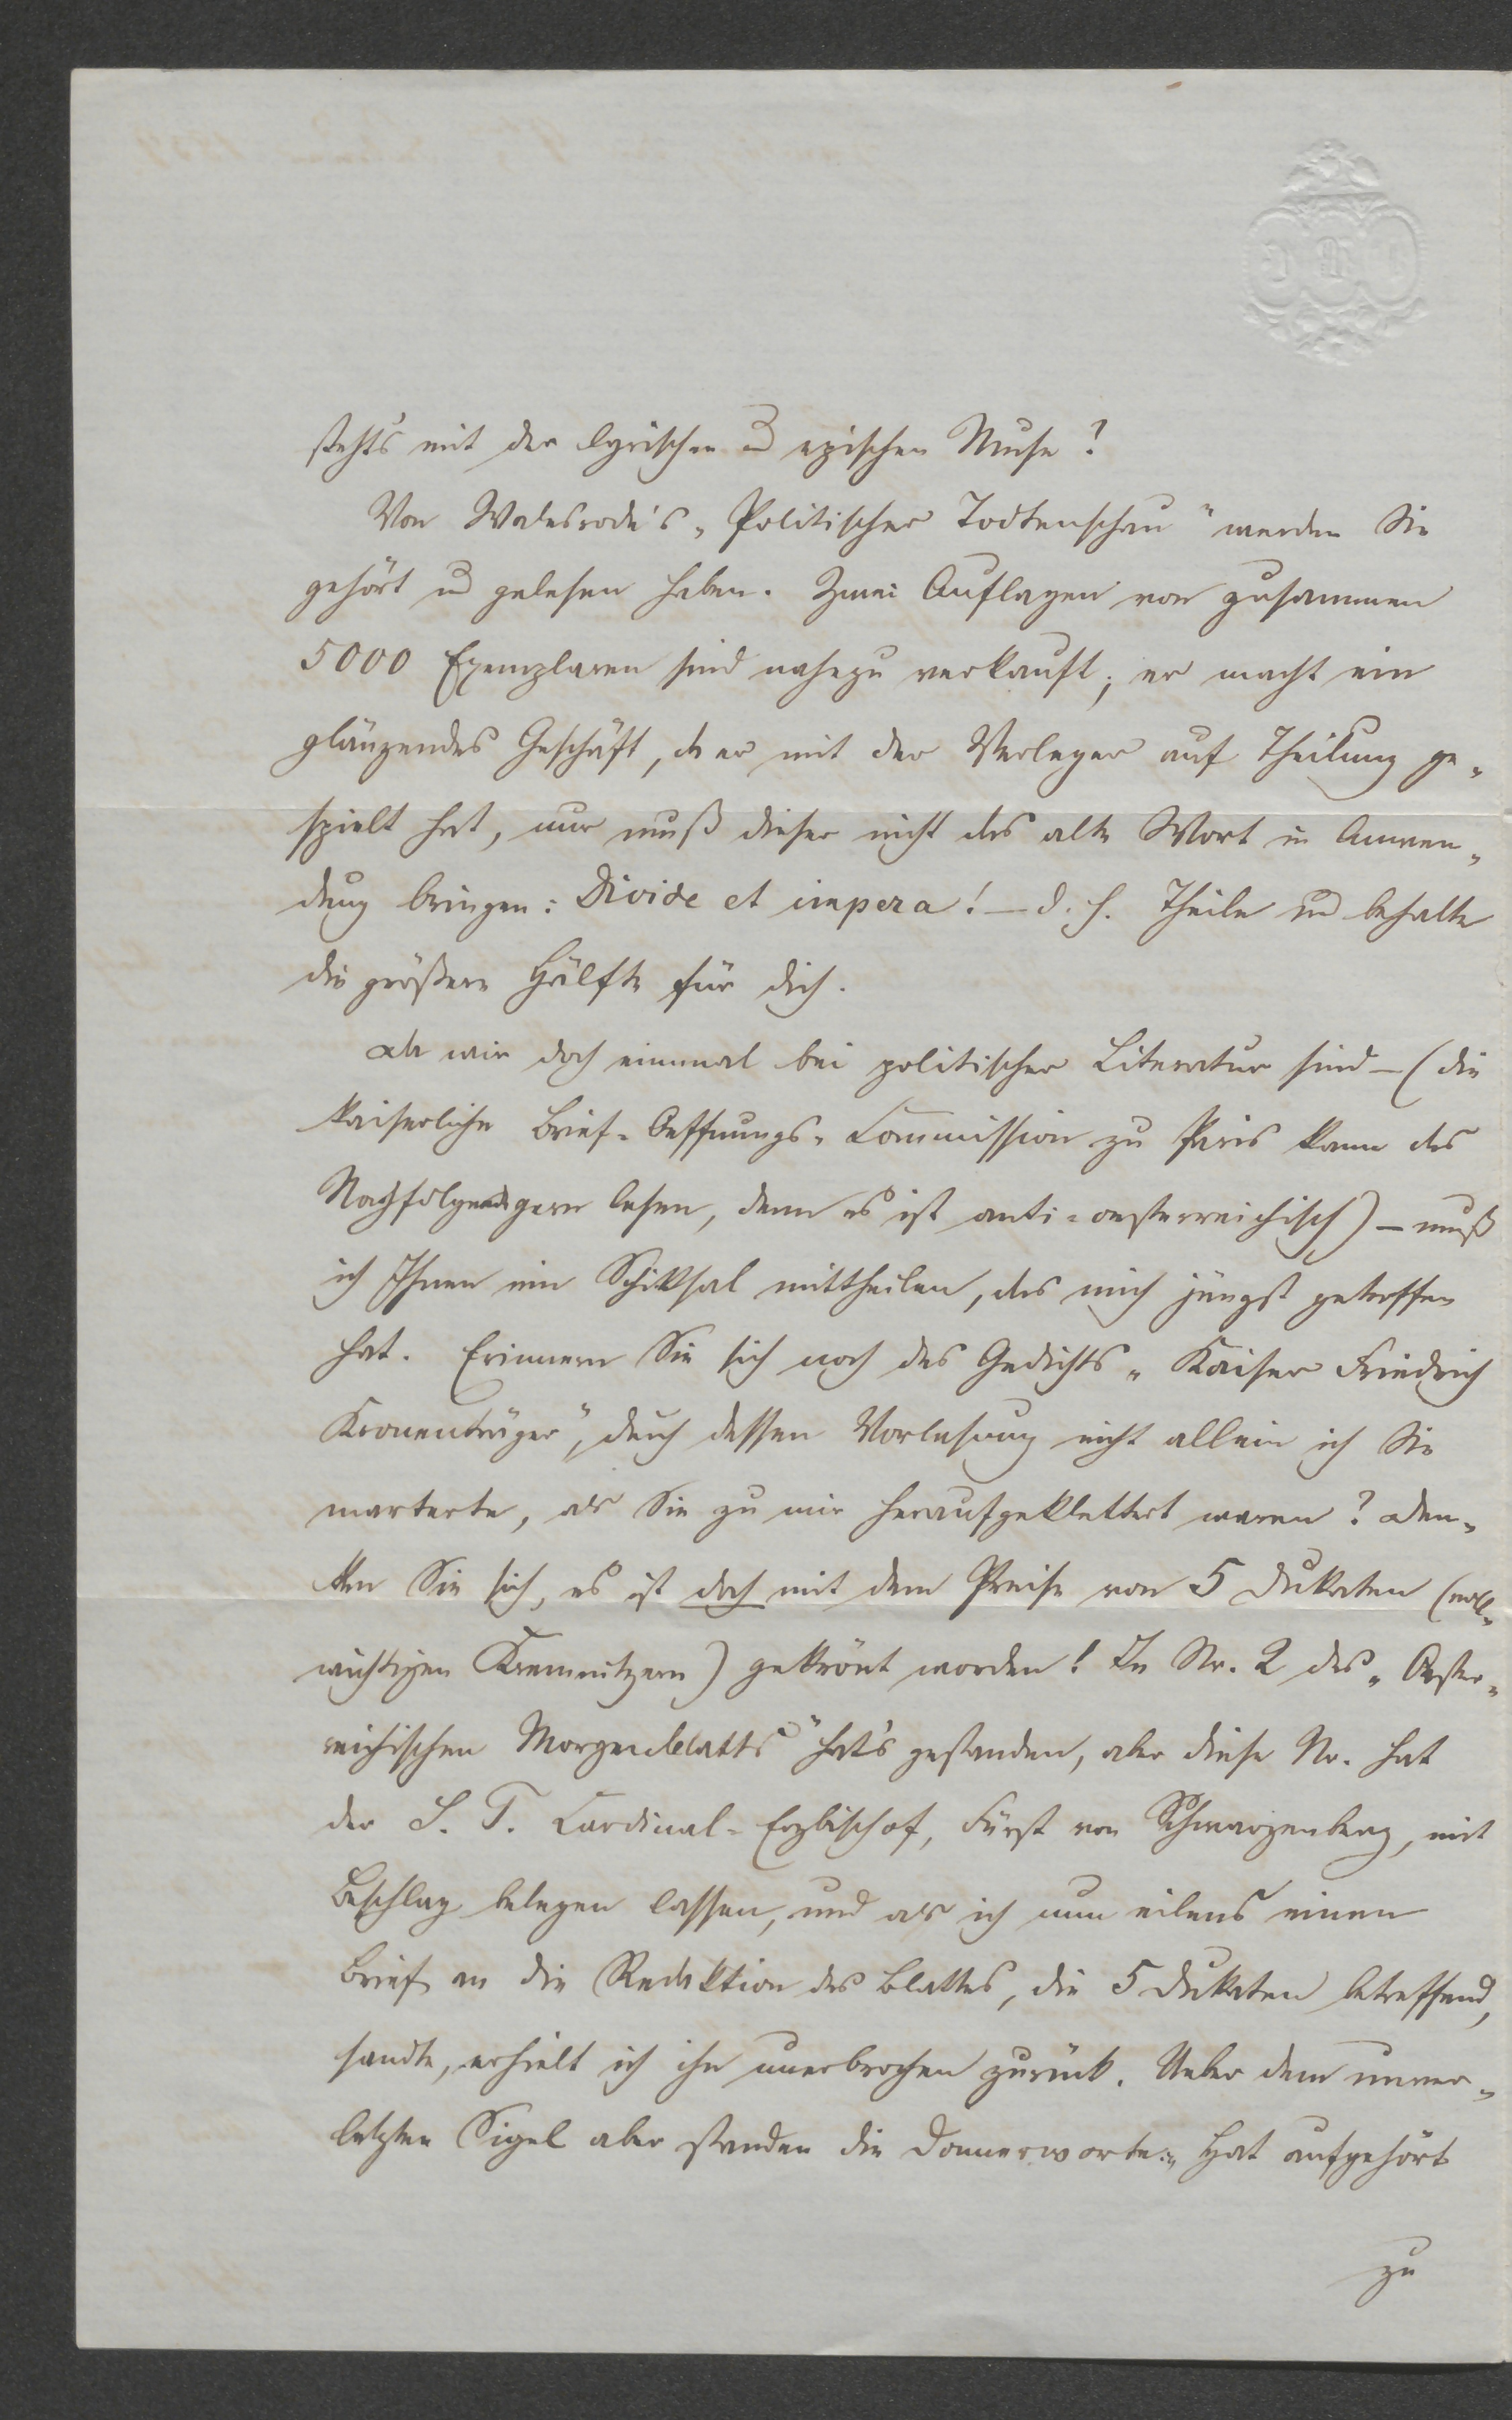 stehts mit der lyrischen u epischen Muse?
Von Walesrode's „Politischer Todtenschau" werden Sie
gehört u gelesen haben. Zwei Auflagen von zusammen
5000 Exemplaren sind nahezu verkauft; er macht ein
glänzendes Geschäft, da er mit der Verleger auf Theilung ge„
spielt hat, nur muß dieser nicht das alte Wort in Anwen„
dung bringen: Divide et impera! – d. h. Theile und behalte
die größere Hälfte für dich.
Da wir doch einmal bei politischer Literatur sind – (die
kaiserliche Brief-Oeffnungs-Commission zu Paris kann das
Nachfolgende gern lesen, denn es ist anti-oesterreichisch) – muß
ich Ihnen ein Schiksal mittheilen, das mich jüngst getroffen
hat. Erinnern Sie sich noch des Gedichts „Kaiser Friedrich
Kronenträger", durch dessen Vorlesung nicht allein ich Sie
marterte, als Sie zu mir heraufgeklettert waren? Den„
ken Sie sich, es ist doch mit dem Preise von 5 Dukaten (voll„
wichtigen Kremnitzern) gekrönt worden! In Nr. 2 des „Oester„
reichischen Morgenblatts" hat's gestanden, aber diese Nr. hat
der S. T. Cardinal-Erzbischof, Fürst von Schwarzenberg, mit
Beschlag belegen lassen, und als ich nun eilens einen
Brief an die Redaktion des Blattes, die 5 Dukaten betreffend,
sandte, erhielt ich ihn unerbrochen zurück. Ueber dem unver„
letzten Sigel aber standen die Donnerworte: „Hat aufgehört
zu